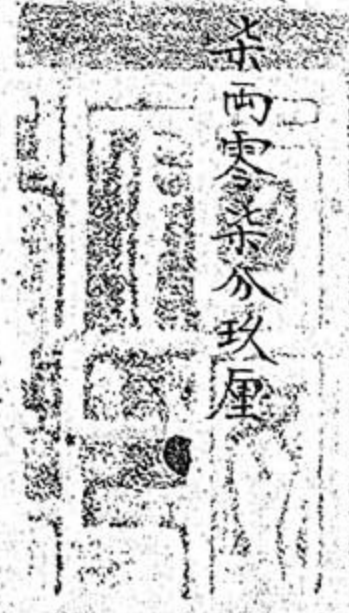 柒両零柒分玖厘